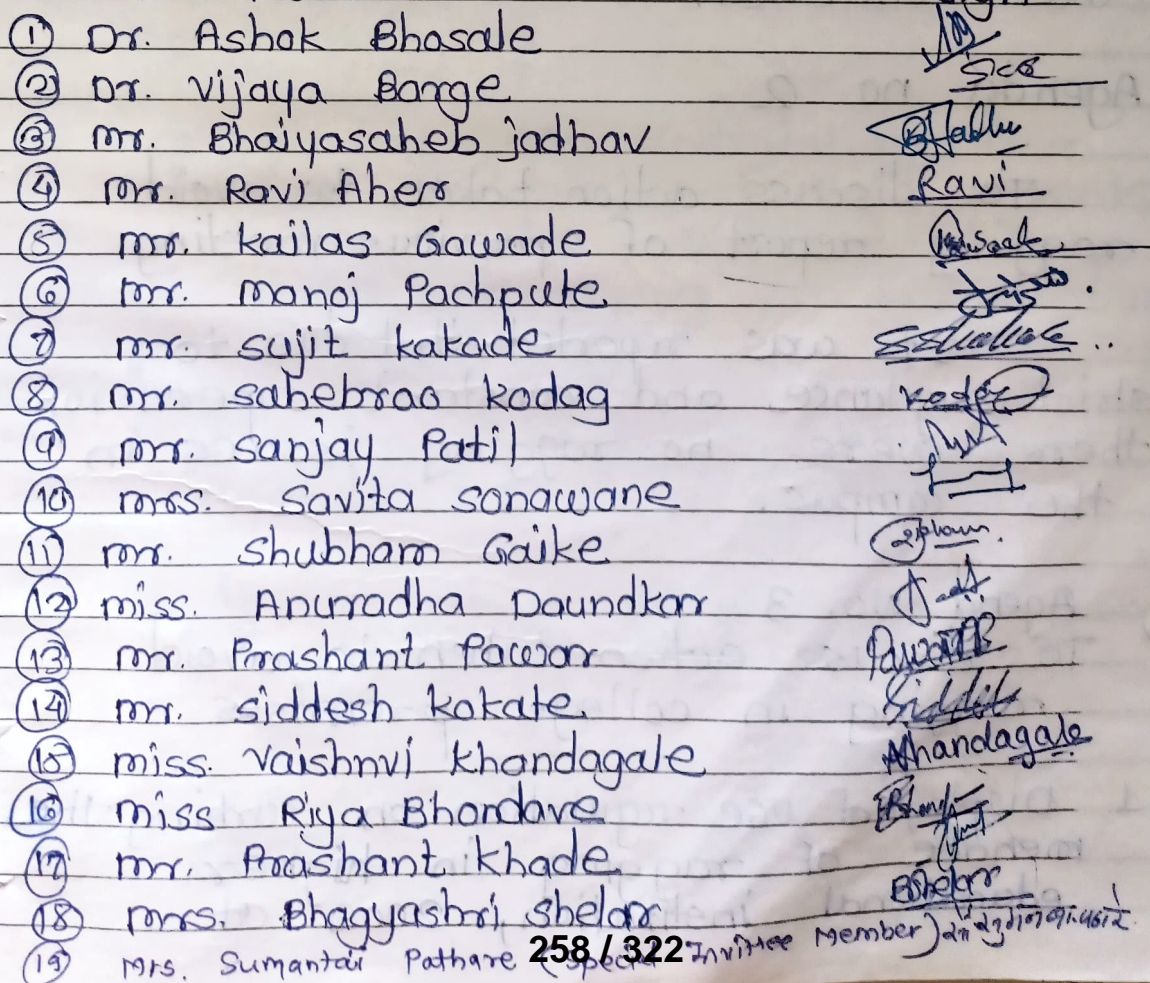 ① Dr. Ashok Bhosale
② Dr. Vijaya Barge
③ mr. Bhaiyasaheb jadhav
④ mr. Ravi Aher Ravi
⑤ mr. kailas Gawade
⑥ mr. manoj Pachpute
⑦ mr. sujit kakade
⑧ mr. sahebrao kadag
⑨ mr. sanjay Patil
⑩ mrs. Savita sonawane
⑪ mr. Shubham Gaike
⑫ miss. Anuradha Daundkar
⑬ mr. Prashant Pawar
⑭ mr. siddesh kokate
⑮ miss. Vaishnvi khandagale khandagale
⑯ miss Riya Bhondave
⑰ mr. Prashant khade
⑱ mrs. Bhagyashri shelar BShelar
⑲ Mrs. Sumantai Pathare (Special Invittee Member)
258 / 322